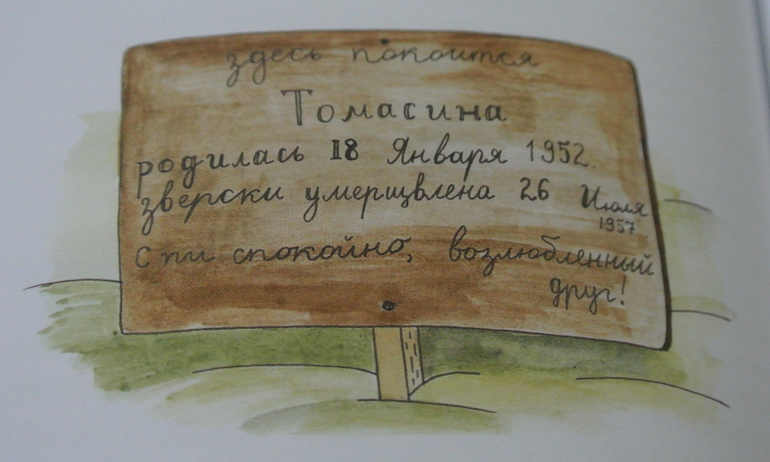 здесь покоится
Томасина
родилась 18 Января 1952.
зверски умерщвлена 26 Июля
1957
Спи спокойно, возлюбленный
друг!